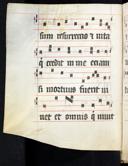 sum resurrectio et uita
q̄ credit in me etiam
si mortuus fuerit in
uet et omnis qui uiuit